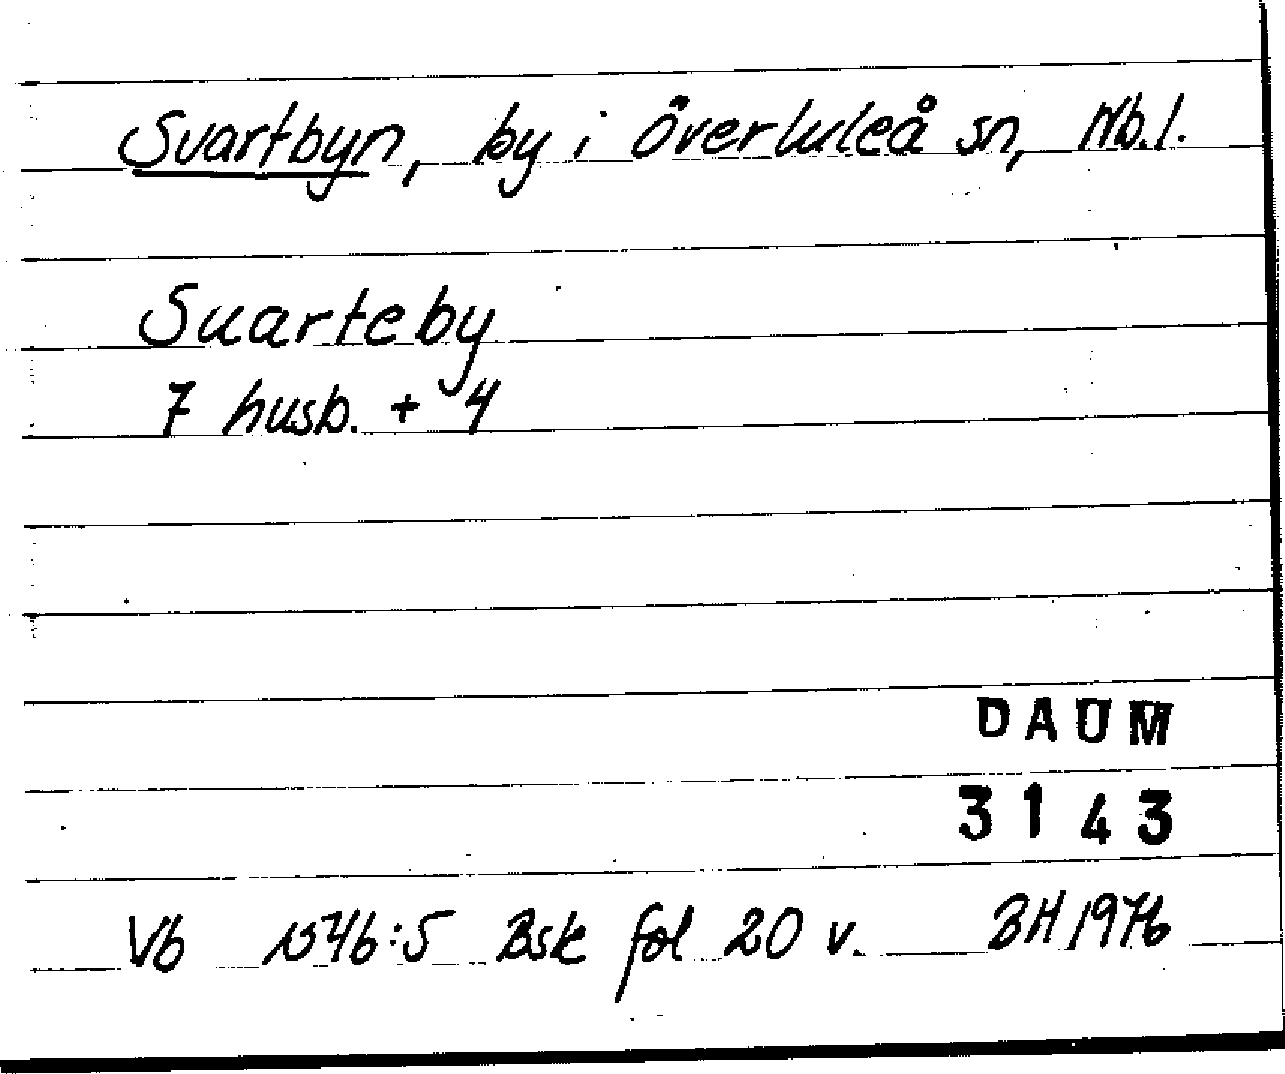 Svartbyn, by i Överluleå sn, Nb.l.
Suarteby
7 husb. + 4
DAUM
3143
Vb 1546:5 Bsk fol 20 v. BH 1976